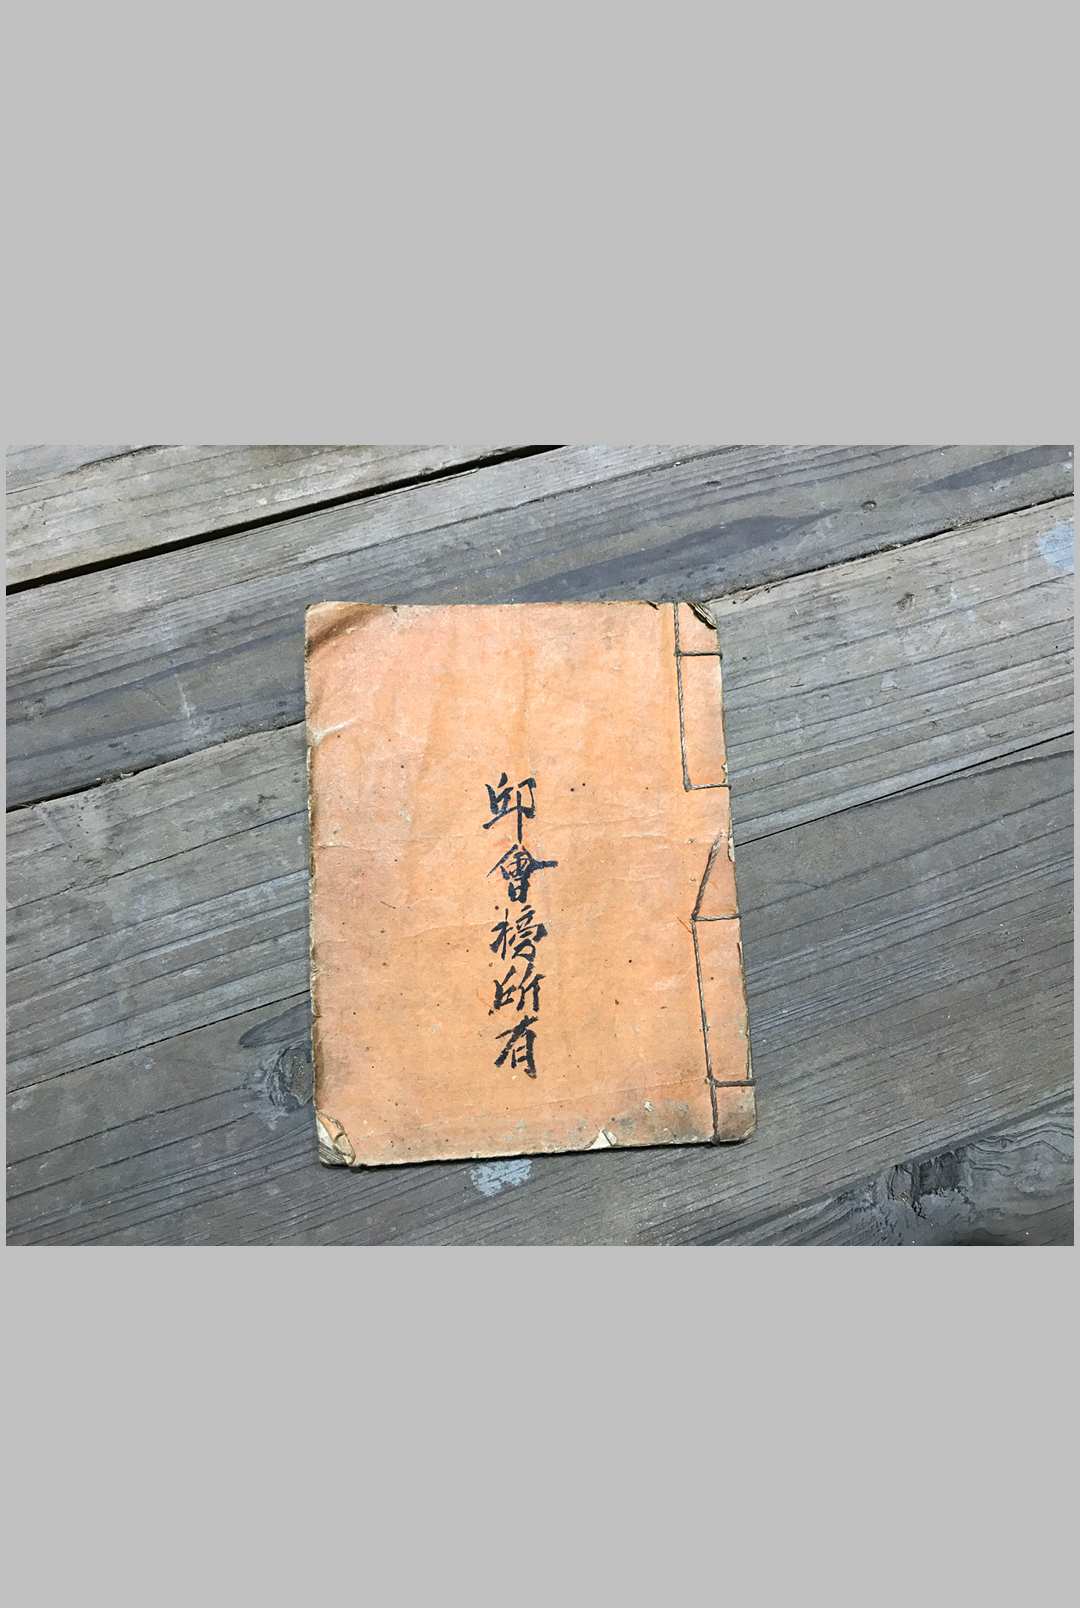 邱會榜所有